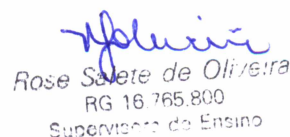 Rose Salete de Oliveira
RG 16.765.800
Supervisora de Ensino